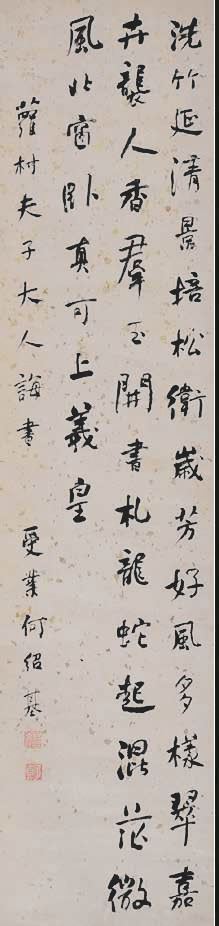 洗竹延清景培松衛歲芳好風多樣翠嘉
卉襲人香羣玉開書札龍蛇起混茫微
風北窗卧真可上羲皇
蘿村夫子大人誨書　受業何紹基